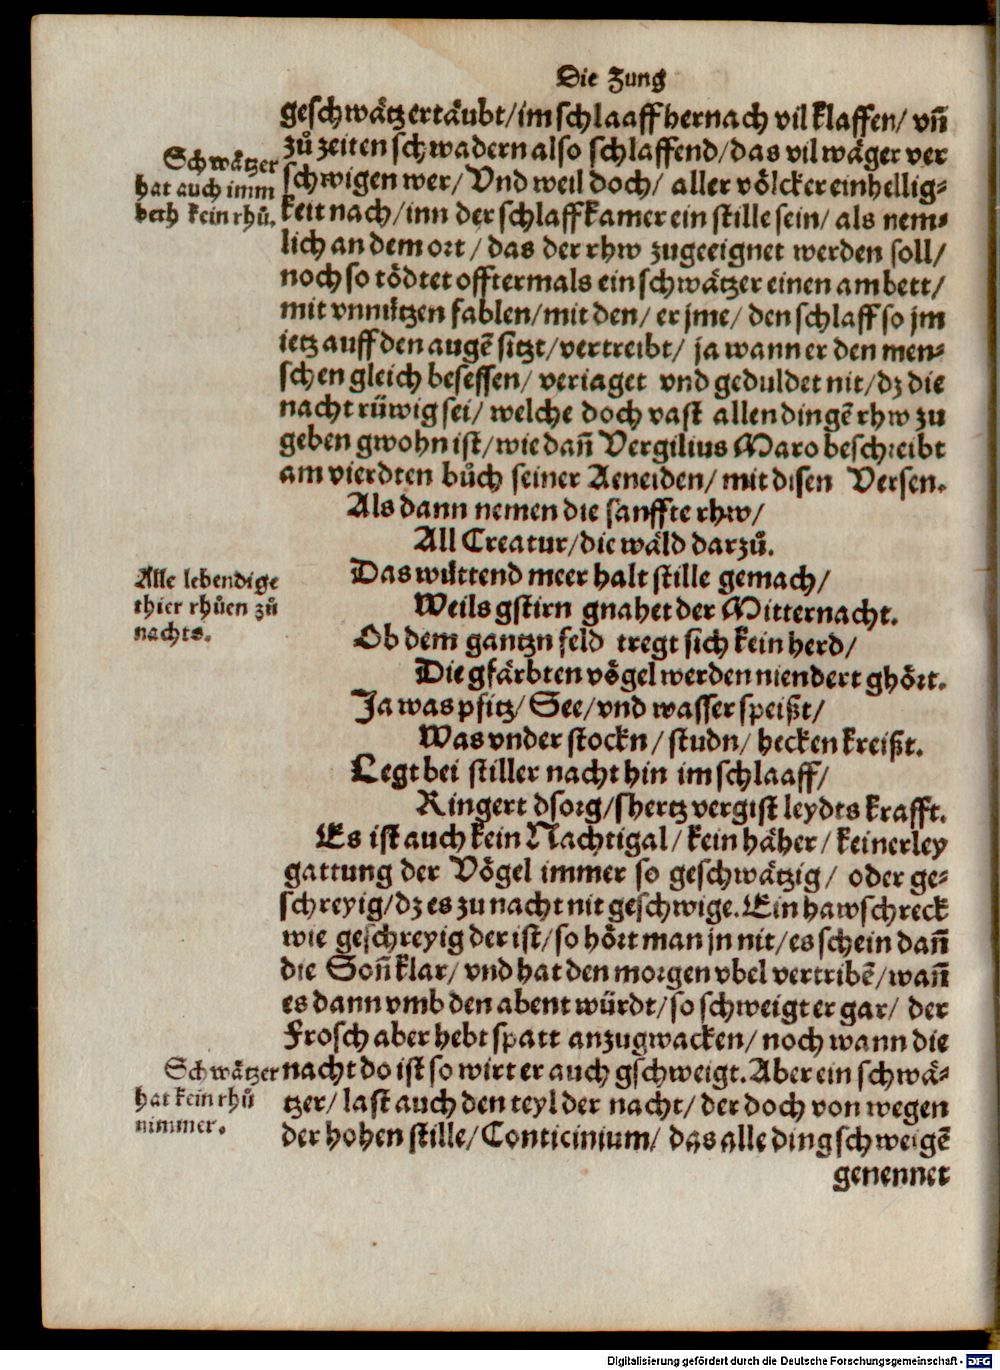 Die Zung
geschwätz ertäubt/ im schlaaff hernach vil klaffen/ vñ
zů zeiten schwadern also schlaffend/ das vil wäger ver
schwigen wer/ Vnd weil doch/ aller völcker einhellig-
keit nach/ inn der schlaffkamer ein stille sein/ als nem-
lich an dem ort/ das der rhw zugeeignet werden soll/
noch so tödtet offtermals ein schwätzer einen am bett/
mit vnnützen fablen/ mit den/ er jme/ den schlaff so jm
ietz auff den augẽ sitzt/ vertreibt/ ja wann er den men-
schen gleich besessen/ veriaget vnd geduldet nit/ dz die
nacht rüwig sei/ welche doch vast allen dingẽ rhw zu
geben gwohn ist/ wie dañ Vergilius Maro beschreibt
am vierdten bůch seiner Aeneiden/ mit disen Versen.
Als dann nemen die sanffte rhw/
All Creatur/ die wäld darzů.
Das wüttend meer halt stille gemach/
Weils gstirn gnahet der Mitternacht.
Ob dem gantzn feld tregt sich kein herd/
Die gfärbten vögel werden niendert ghört.
Ja was pfitz/ See/ vnd wasser speißt/
Was vnder stockn/ studn/ hecken kreißt.
Legt bei stiller nacht hin im schlaaff/
Ringert dsorg/ shertz vergist leydts krafft.
Es ist auch kein Nachtigal/ kein häher/ keinerley
gattung der Vögel immer so geschwätzig/ oder ge-
schreyig/ dz es zu nacht nit geschwige. Ein hawschreck
wie geschreyig der ist/ so hört man jn nit/ es schein dañ
die Soñ klar/ vnd hat den morgen vbel vertribẽ/ wañ
es dann vmb den abent würdt/ so schweigt er gar/ der
Frosch aber hebt spatt anzugwacken/ noch wann die
nacht do ist so wirt er auch gschweigt. Aber ein schwä-
tzer/ last auch den teyl der nacht/ der doch von wegen
der hohen stille/ Conticinium/ das alle ding schweigẽ
genennet
Schwätzer
hat auch imm
beth kein rhů.
Alle lebendige
thier rhůen zů
nachts.
Schwätzer
hat kein rhů
nimmer.
Digitalisierung gefördert durch die Deutsche Forschungsgemeinschaft - DFG